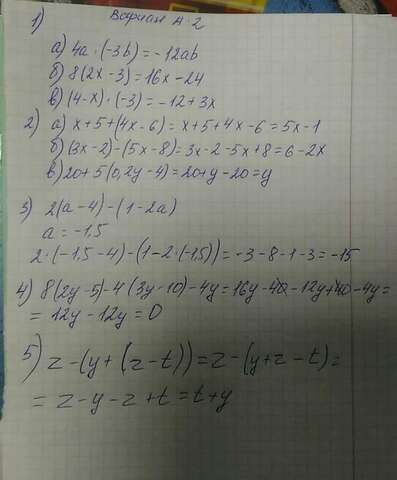 Вариант А-2
1)
а) 4a · (-3b) = -12ab
б) 8(2x - 3) = 16x - 24
в) (4-x) · (-3) = -12 + 3x
2) а) x + 5 + (4x - 6) = x + 5 + 4x - 6 = 5x - 1
б) (3x - 2) - (5x - 8) = 3x - 2 - 5x + 8 = 6 - 2x
в) 20 + 5(0,2y - 4) = 20 + y - 20 = y
3) 2(a - 4) - (1 - 2a)
a = -1,5
2 · (-1,5 - 4) - (1 - 2 · (-1,5)) = -3 - 8 - 1 - 3 = -15
4) 8(2y - 5) - 4(3y - 10) - 4y = 16y - 40 - 12y + 40 - 4y =
= 12y - 12y = 0
5) z - (y + (z - t)) = z - (y + z - t) =
= z - y - z + t = t + y